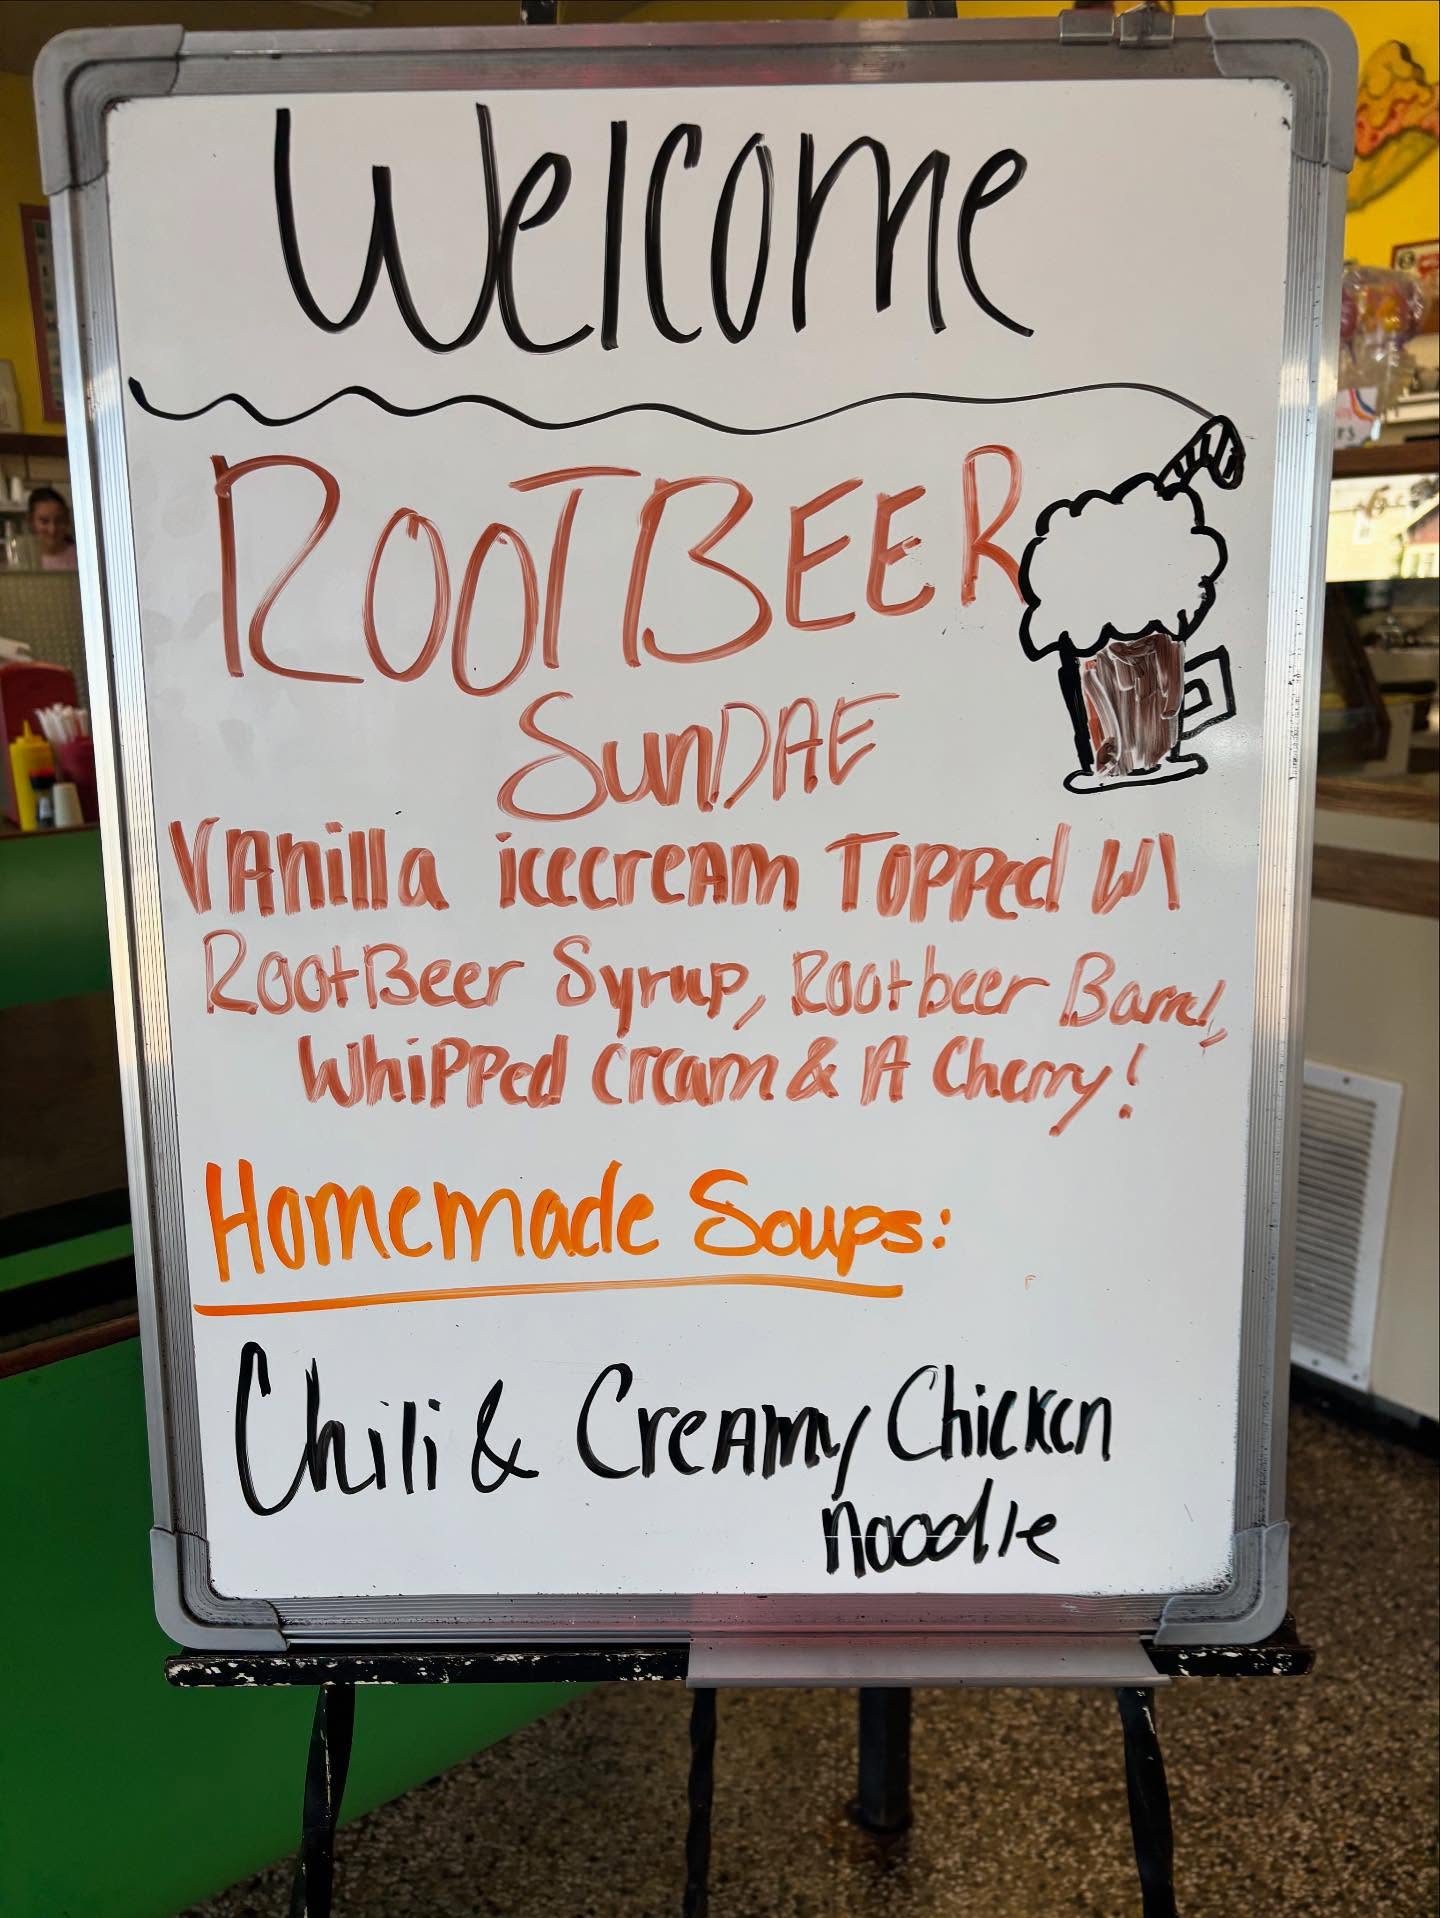 Welcome
ROOTBEER
SunDAE
VAnilla icecreAm Topped w/
RootBeer Syrup, Rootbeer Barrel,
Whipped cream & A Cherry!
Homemade Soups:
Chili & CreAmy Chicken
noodle